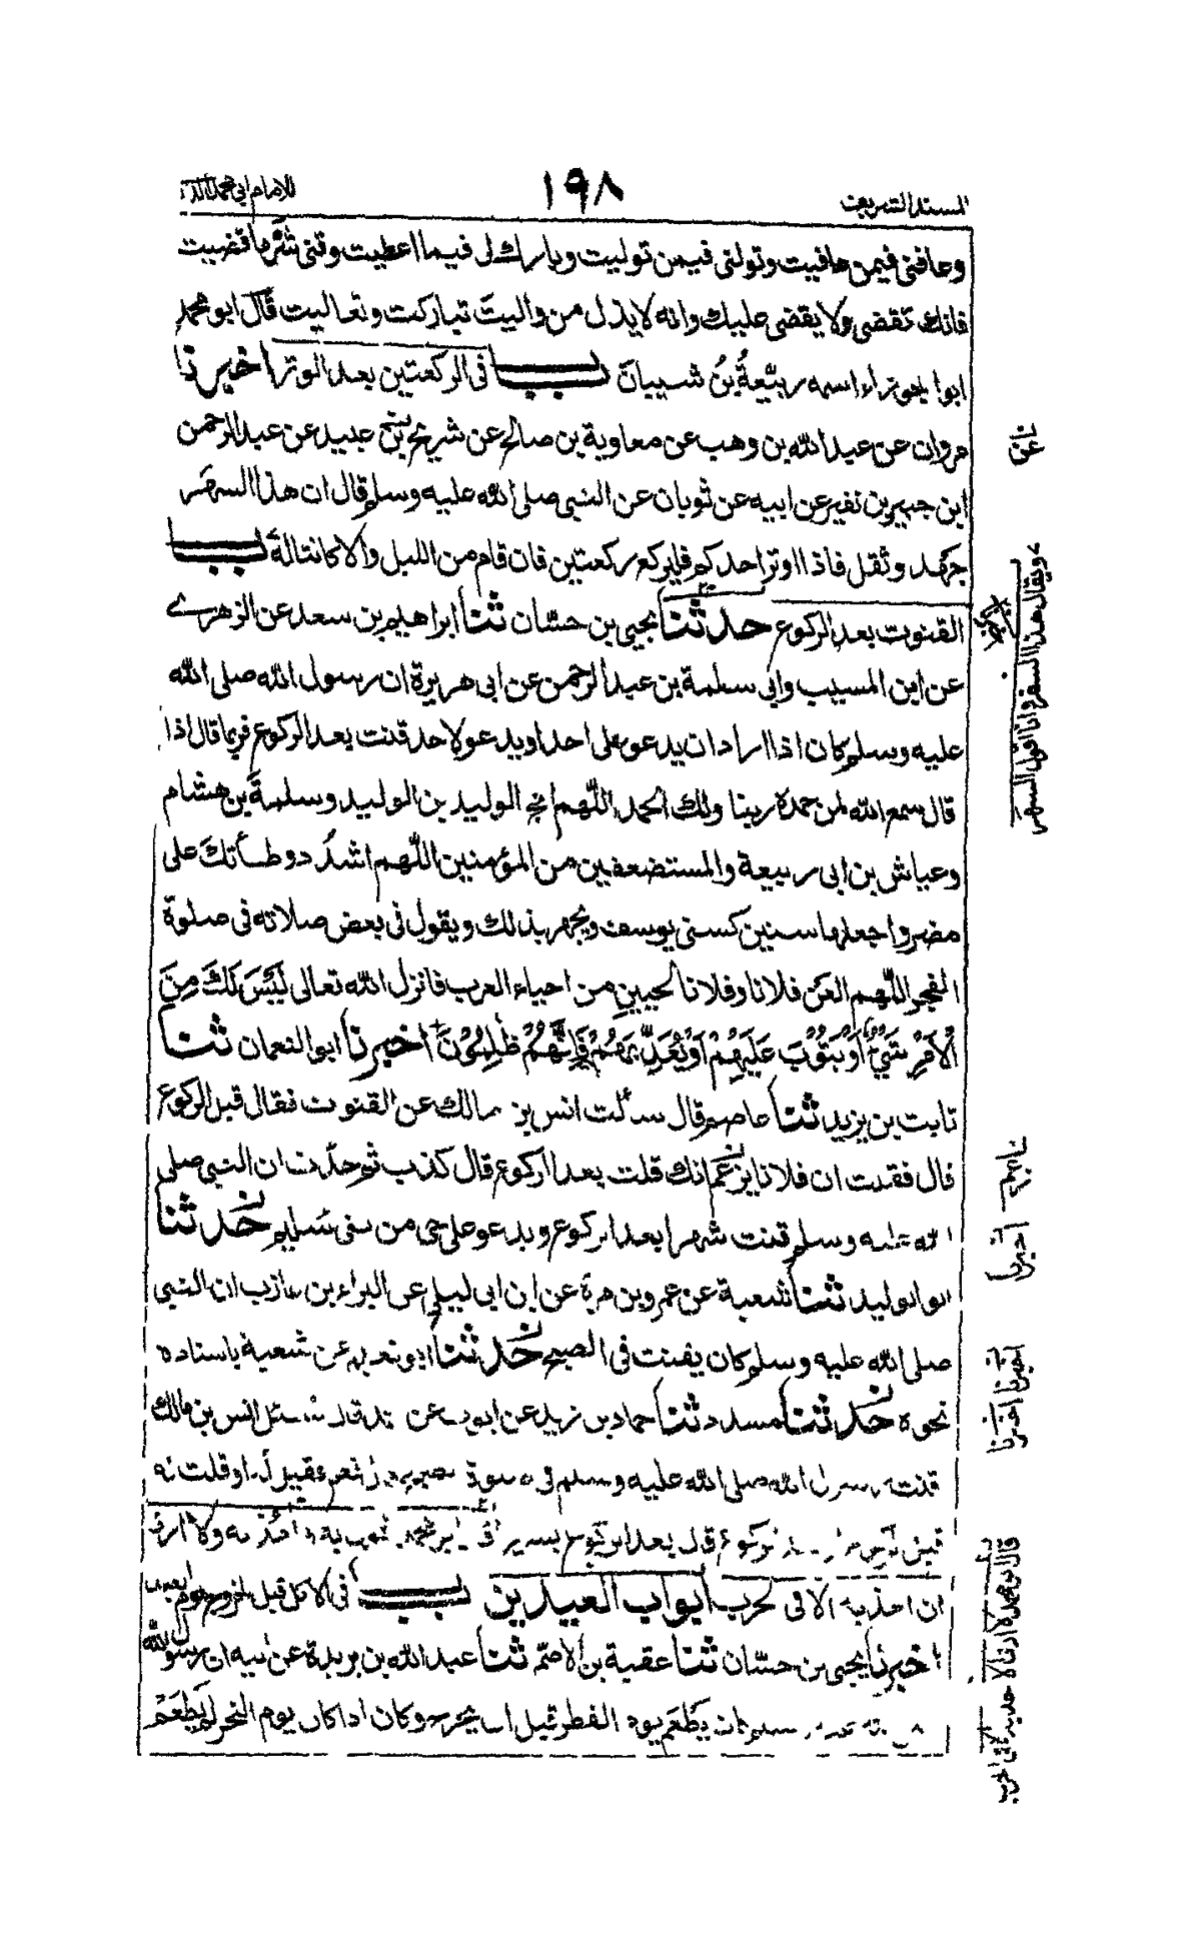 المسند الشريف
١٩٨
للامام ابي محمد الدار
وعافني فيمن عافيت وتولني فيمن توليت وبارك لي فيما اعطيت وقني شر ما قضيت
فانك تقضي ولا يقضى عليك وانه لا يذل من واليت تباركت وتعاليت قال ابو محمد
ابو الجوزاء اسمه ربيعة بن شيبان باب في الركعتين بعد الوتر اخبرنا
مروان عن عبد الله بن وهب عن معاوية بن صالح عن شريح بن عبيد عن عبد الرحمن
ابن جبير بن نفير عن ابيه عن ثوبان عن النبي صلى الله عليه وسلم قال ان هذا السهر
جهد وثقل فاذا اوتر احدكم فليركع ركعتين فان قام من الليل والا كانتا له باب
القنوت بعد الركوع حدثنا يحيى بن حسان ثنا ابراهيم بن سعد عن الزهري
عن ابن المسيب وابي سلمة بن عبد الرحمن عن ابي هريرة ان رسول الله صلى الله
عليه وسلم كان اذا اراد ان يدعو على احد او يدعو لاحد قنت بعد الركوع فربما قال اذا
قال سمع الله لمن حمده ربنا ولك الحمد اللهم انج الوليد بن الوليد وسلمة بن هشام
وعياش بن ابي ربيعة والمستضعفين من المؤمنين اللهم اشدد وطأتك على
مضر واجعلها سنين كسني يوسف ويجهر بذلك ويقول في بعض صلاته في صلوة
الفجر اللهم العن فلانا وفلانا لحيين من احياء العرب فانزل الله تعالى لَيْسَ لَكَ مِنَ
الْاَمْرِ شَيْءٌ اَوْ يَتُوْبَ عَلَيْهِمْ اَوْ يُعَذِّبَهُمْ فَاِنَّهُمْ ظٰلِمُوْنَ اخبرنا ابو النعمان ثنا
ثابت بن يزيد ثنا عاصم قال سألت انس بن مالك عن القنوت فقال قبل الركوع
قال فقلت ان فلانا يزعم انك قلت بعد الركوع قال كذب ثم حدث ان النبي صلى
الله عليه وسلم قنت شهرا بعد الركوع ويدعو على حي من بني سليم حدثنا
ابو الوليد ثنا شعبة عن عمرو بن مرة عن ابن ابي ليلى عن البراء بن عازب ان النبي
صلى الله عليه وسلم كان يقنت في الصبح حدثنا ابو نعيم عن شعبة باسناده
نحوه حدثنا مسدد ثنا حماد بن زيد عن ايوب عن قال سئل انس بن مالك
قنت رسول الله صلى الله عليه وسلم في صلوة قال نعم فقيل له او قلت له
قبل الركوع قال بعد الركوع يسيرا قال ابو محمد به ولا ارى
ان اخذ به الا في الحرب ابواب العيدين باب في الاكل قبل الخروج يوم العيد
اخبرنا يحيى بن حسان ثنا عقبة بن الاصم ثنا عبد الله بن بريدة عن ابيه ان رسول الله
كان يطعم يوم الفطر قبل ان يخرج وكان اذا كان يوم النحر لم يطعم
نا عن
ويقال هذا السفر وانا اقول السهر
نا ابراهيم
اخبرنا
اخبرنا اخبرنا
قال ابو محمد لا ارى الاخذ به الا في الحرب